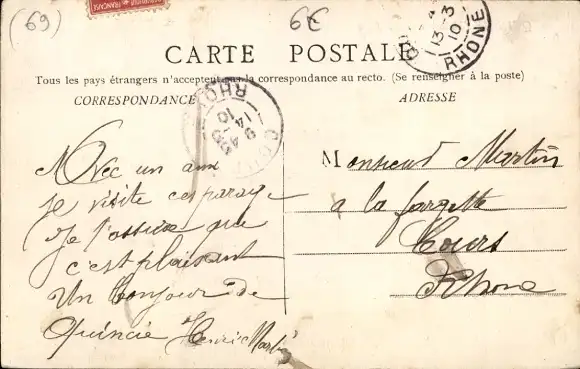 (69)
6€
CARTE POSTALE
Tous les pays étrangers n'acceptent pas la correspondance au recto. (Se renseigner à la poste)
CORRESPONDANCE
ADRESSE
RHONE
13-3
10
RHO
14
10
Avec un ami
je visite ces parages
Je t'assure que
c'est plaisant
Un bonjour de
Quincié Henri Martin
Monsieur Martin
a la fargette
Cours
Rhone